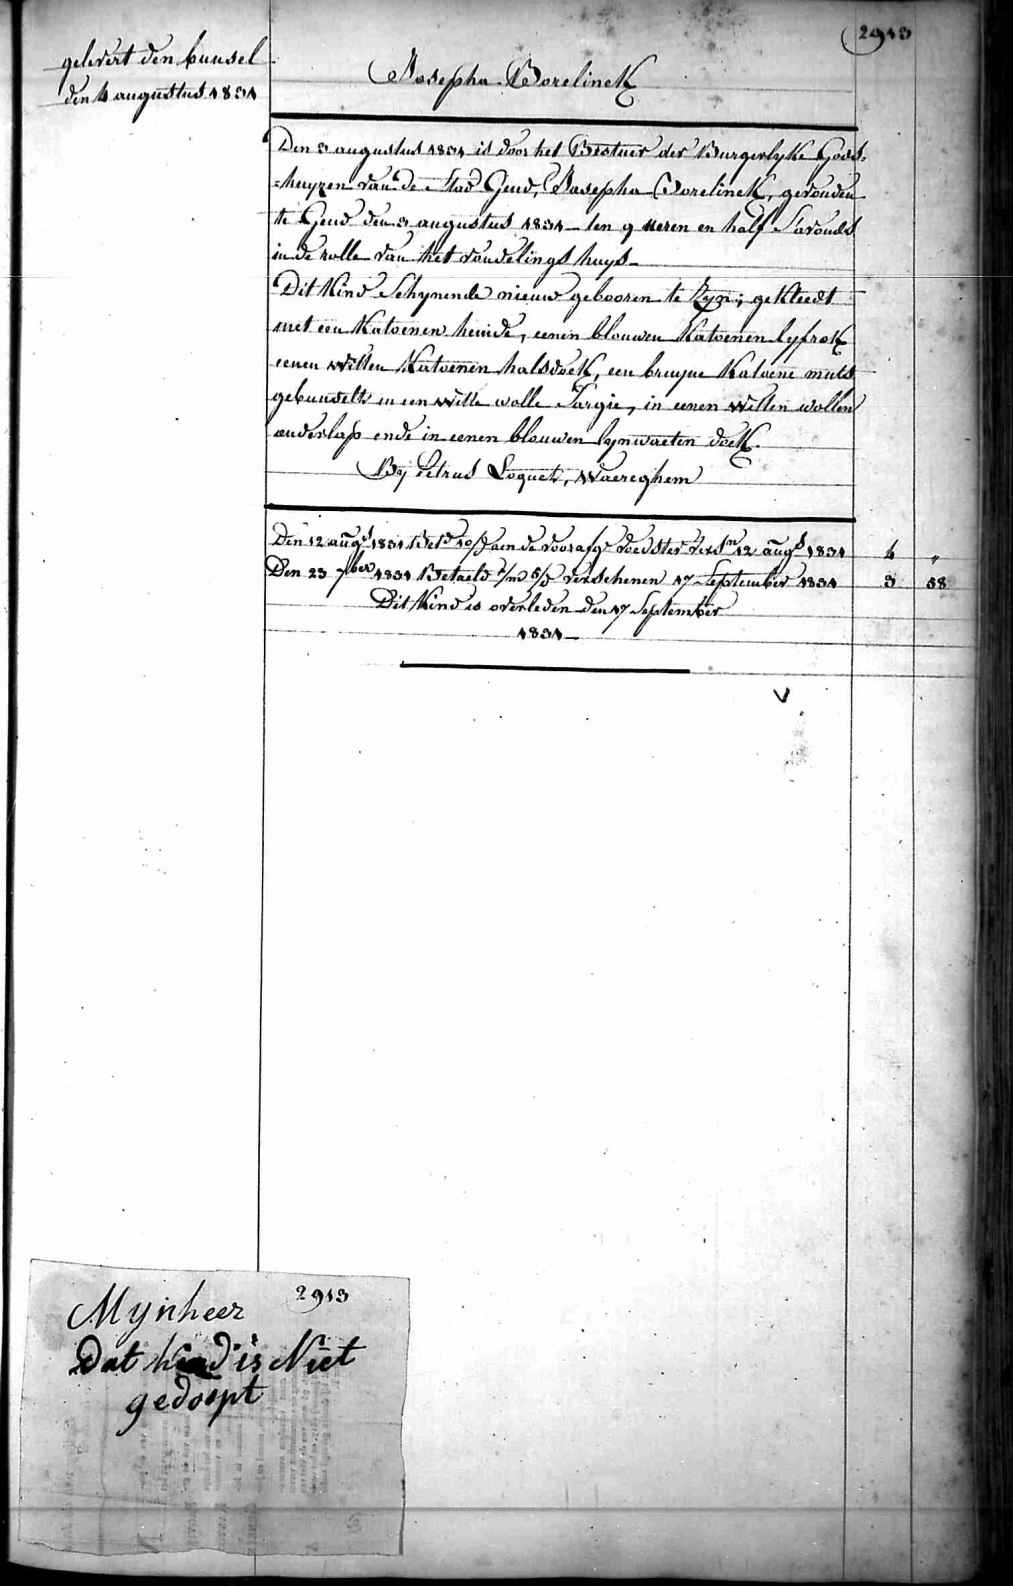 2913
gelevert den bunsel
den 4 augustus 1834
Josepha Borelinck
Den 3 augustus 1834 is door het Bestuer der Burgerlyke Gods=
=huyzen van de Stad Gend, Josepha Borelinck, gevonden
te Gend den 3 augustus 1834 ten 9 ueren en half S'avonds
in de rolle van het vondelings huys
Dit Kind Schynende nieuw gebooren te Zyn; gekleedt
met een Katoenen hemde, eenen blouwen Katoenen lyfrok
eenen witten Katoenen halsdoek, een bruyne Katoene muts
gebunselt in een witte wolle Sargie, in eenen witten wollen
onderlap ende in eenen blouwen lynwaeten doek.
By Petrus Loquet, Waereghem
Den 12 augs 1834 Betd 10/f aen de voorafge voedster versn 12 augs 1834 4 "
Den 23 7ber 1834 Betaeld 5/f verschenen 17 September 1834 3 58
Dit Kind is overleden den 17 September
1834
2913
Mynheer
Dat kind is Niet
gedoopt